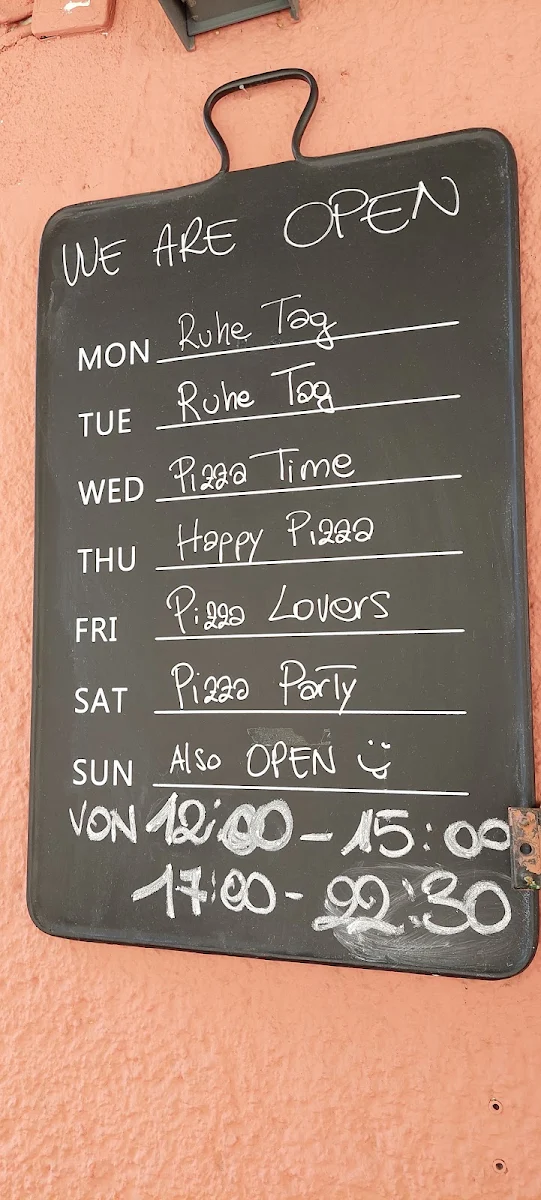 WE ARE OPEN
MON Ruhe Tag
TUE Ruhe Tag
WED Pizza Time
THU Happy Pizza
FRI Pizza Lovers
SAT Pizza Party
SUN Also OPEN
VON 12:00 - 15:00
17:00 - 22:30